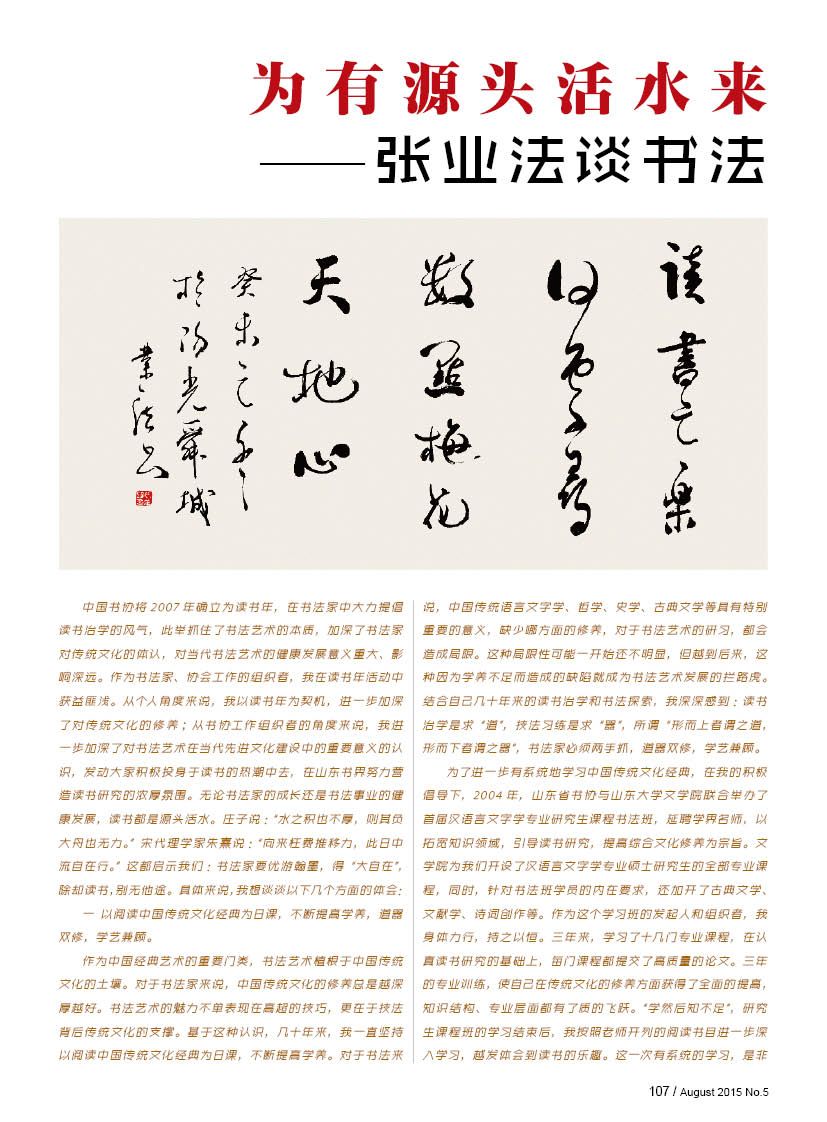 为有源头活水来
——张业法谈书法
读书之乐
何处寻
数点梅花
天地心
癸未之
於阳光舜城
业法书
中国书协将2007年确立为读书年，在书法家中大力提倡
读书治学的风气，此举抓住了书法艺术的本质，加深了书法家
对传统文化的体认，对当代书法艺术的健康发展意义重大、影
响深远。作为书法家、协会工作的组织者，我在读书年活动中
获益匪浅。从个人角度来说，我以读书年为契机，进一步加深
了对传统文化的修养；从书协工作组织者的角度来说，我进
一步加深了对书法艺术在当代先进文化建设中的重要意义的认
识，发动大家积极投身于读书的热潮中去，在山东书界努力营
造读书研究的浓厚氛围。无论书法家的成长还是书法事业的健
康发展，读书都是源头活水。庄子说：“水之积也不厚，则其负
大舟也无力。”宋代理学家朱熹说：“向来枉费推移力，此日中
流自在行。”这都启示我们：书法家要优游翰墨，得“大自在”，
除却读书，别无他途。具体来说，我想谈谈以下几个方面的体会：
一 以阅读中国传统文化经典为日课，不断提高学养，道器
双修，学艺兼顾。
作为中国经典艺术的重要门类，书法艺术植根于中国传统
文化的土壤。对于书法家来说，中国传统文化的修养总是越深
厚越好。书法艺术的魅力不单表现在高超的技巧，更在于技法
背后传统文化的支撑。基于这种认识，几十年来，我一直坚持
以阅读中国传统文化经典为日课，不断提高学养。对于书法来
说，中国传统语言文字学、哲学、史学、古典文学等具有特别
重要的意义，缺少哪方面的修养，对于书法艺术的研习，都会
造成局限。这种局限性可能一开始还不明显，但越到后来，这
种因为学养不足而造成的缺陷就成为书法艺术发展的拦路虎。
结合自己几十年来的读书治学和书法探索，我深深感到：读书
治学是求“道”，技法习练是求“器”，所谓“形而上者谓之道，
形而下者谓之器”，书法家必须两手抓，道器双修，学艺兼顾。
为了进一步有系统地学习中国传统文化经典，在我的积极
倡导下，2004年，山东省书协与山东大学文学院联合举办了
首届汉语言文字学专业研究生课程书法班，延聘学界名师，以
拓宽知识领域，引导读书研究，提高综合文化修养为宗旨。文
学院为我们开设了汉语言文字学专业硕士研究生的全部专业课
程，同时，针对书法班学员的内在要求，还加开了古典文学、
文献学、诗词创作等。作为这个学习班的发起人和组织者，我
身体力行，持之以恒。三年来，学习了十几门专业课程，在认
真读书研究的基础上，每门课程都提交了高质量的论文。三年
的专业训练，使自己在传统文化的修养方面获得了全面的提高，
知识结构、专业层面都有了质的飞跃。“学然后知不足”，研究
生课程班的学习结束后，我按照老师开列的阅读书目进一步深
入学习，越发体会到读书的乐趣。这一次有系统的学习，是非
107 / August 2015 No.5